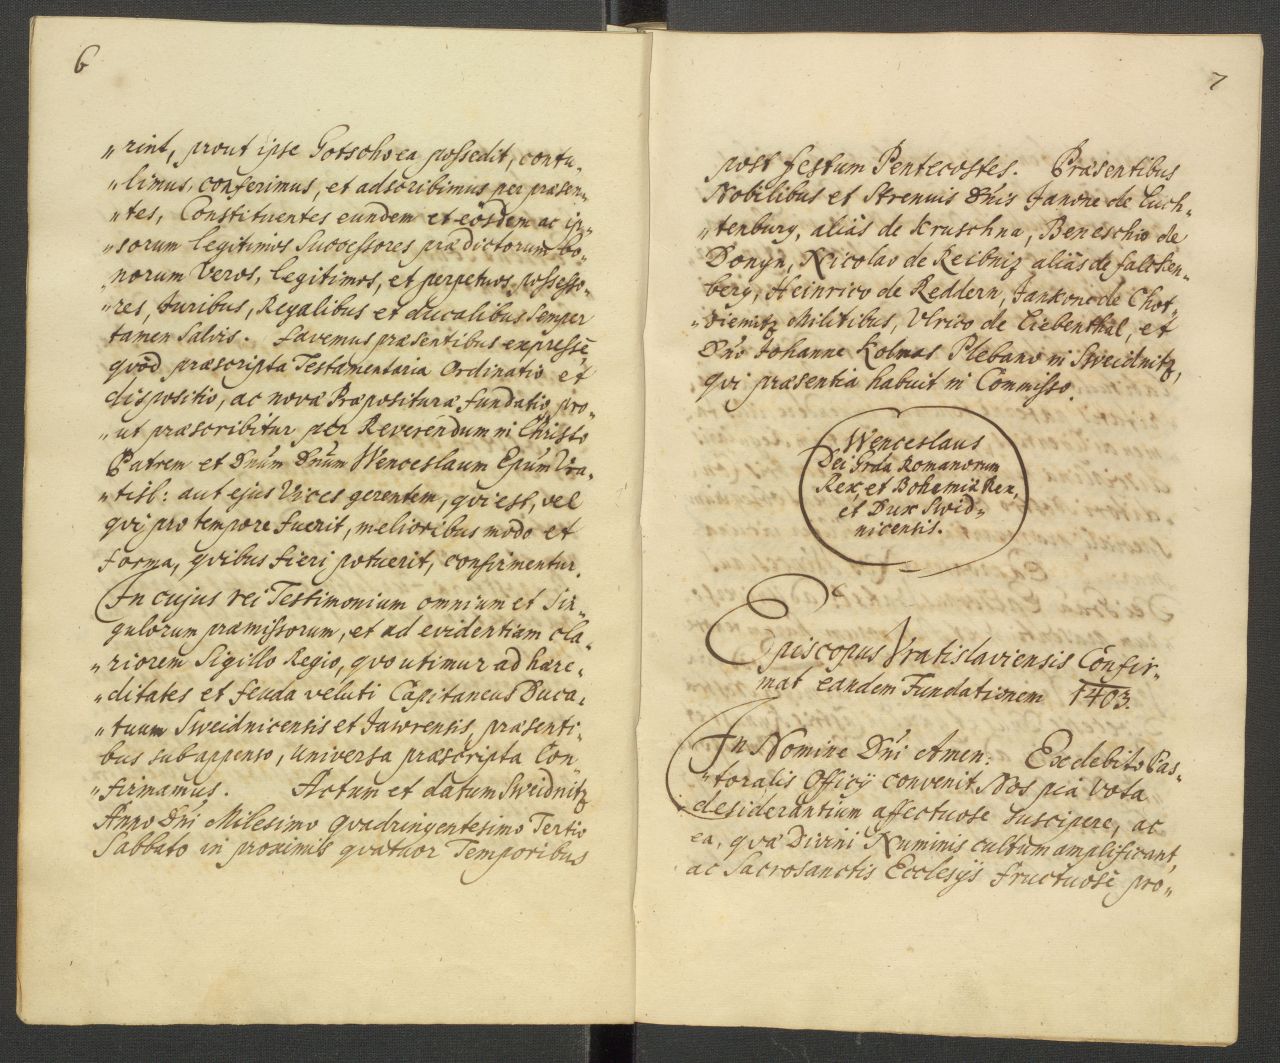 6
„rint, prout ipse Gotschoca possedit, contu„
„limus, conferimus, et adscribimus per præsen„
„tes, Constituentes eundem et eosdem ac ip„
„sorum legitimos Successores prædictorum bo„
„norum Veros, legitimos, et perpetuos possesso„
„res, Juribus, Regalibus et ducalibus semper
tamen salvis. Favemus præsentibus expressè,
quòd præscripta Testamentaria Ordinatio et
dispositio, ac nova Præposituræ fundatio, pro„
„ut præscribitur per Reverendum in Christo
Patrem et Dnum Dnum Wenceslaum Epum Vra„
„tisl: aut ejus Vices gerentem, qui est, vel
qui pro tempore fuerit, melioribus modo et
forma, quibus fieri potuerit, confirmentur.
In cujus rei Testimonium omnium et sin„
gulorum præmissorum, et ad evidentiam cla„
„riorem Sigillo Regio, quo utimur ad hære„
„ditates et feuda veluti Capitaneus Duca„
„tuum Sweidnicensis et Jawrensis, præsenti„
bus subappenso, universa præscripta Con„
„firmamus. Actum et datum Sweidnitz
Anno Dni Milesimo Quadringentesimo Tertio
Sabbato in proximis quatuor Temporibus
7
post festum Pentecostes. Præsentibus
Nobilibus et Strenuis Dnis Janone de Luch„
„tenburg, aliàs de Kruschna, Beneschio de
Donyn, Nicolao de Reibnitz aliàs de falcken„
berg, Heinrico de Reddern, Jankone de Chot„
„Diemitz Militibus, Ulrico de Liebenthal, et
Dno Johanne Kolmas Plebano in Sweidnitz,
qui præsentia habuit in Commisso.
Wenceslaus
Dei Grãa Romanorum
Rex et Bohemiæ Rex,
et Dux Swid„
nicensis.
Episcopus Vratislaviensis Confir„
mat eandem Fundationem 1403.
In Nomine Dni Amen: Ex debito Pas„
„toralis Officij convenit, Nos pia Vota
desiderantium affectuose suscipere, ac
ea, quæ Divini Numinis cultum amplificant,
ac Sacrosanctis Ecclesijs fructuosè pro„